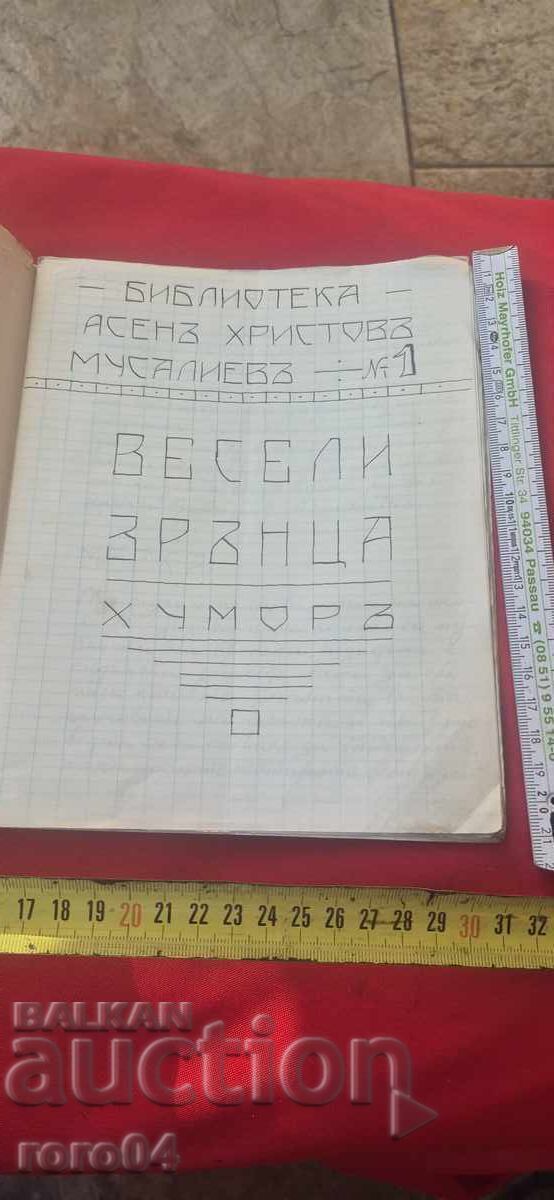 — БИБЛИОТЕКА —
АСЕНЪ ХРИСТОВЪ
МУСАЛИЕВЪ —:— №1
ВЕСЕЛИ
ЗРЪНЦА
ХУМОРЪ
Holz Mayrhofer GmbH Tittlinger Str. 34 94034 Passau ☎ (08 51) 9 55 14-0
17 18 19 20 21 22 23 24 25 26 27 28 29 30 31 32
BALKAN
auction
roro04